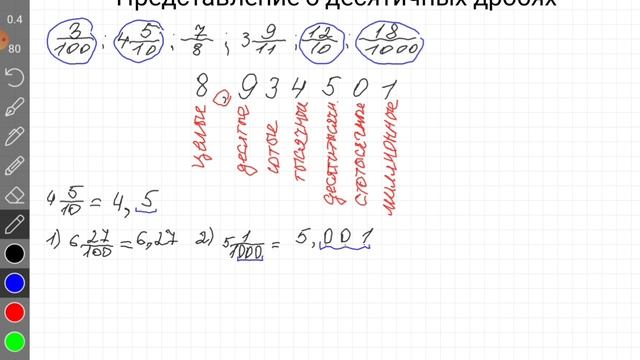 0.4
80
Представление о десятичных дробях
3/100 ; 4 5/10 ; 7/8 ; 3 9/11 ; 12/10 ; 18/1000
8 , 9 3 4 5 0 1
целые десятые сотые тысячные десятитысячн. стотысячные миллионные
4 5/10 = 4, 5
1) 6 27/100 = 6,27 2) 5 1/1000 = 5, 0 0 1